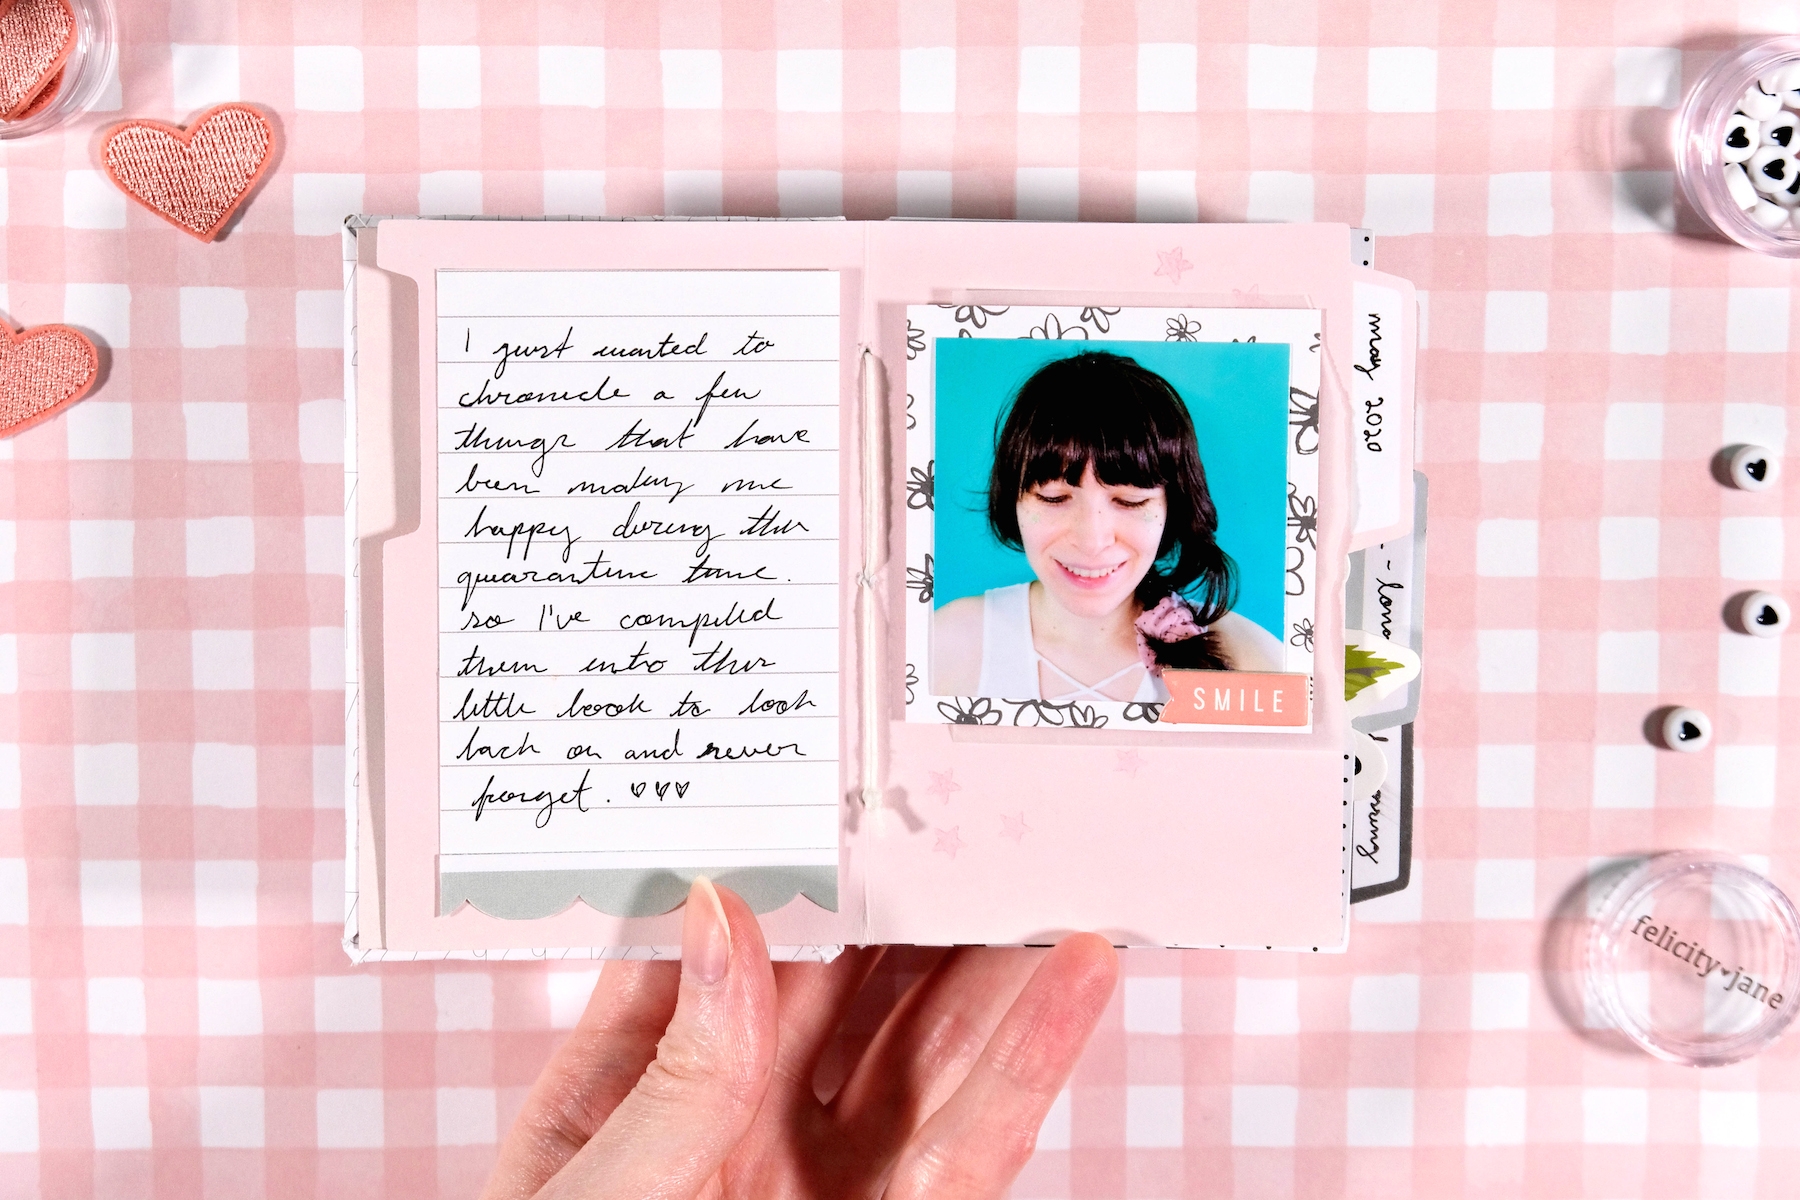 I just wanted to
chronicle a few
things that have
been making me
happy during this
quarantine time.
so I've compiled
them into this
little book to look
back on and never
forget. ♡♡♡
SMILE
may 2020
felicity♥jane